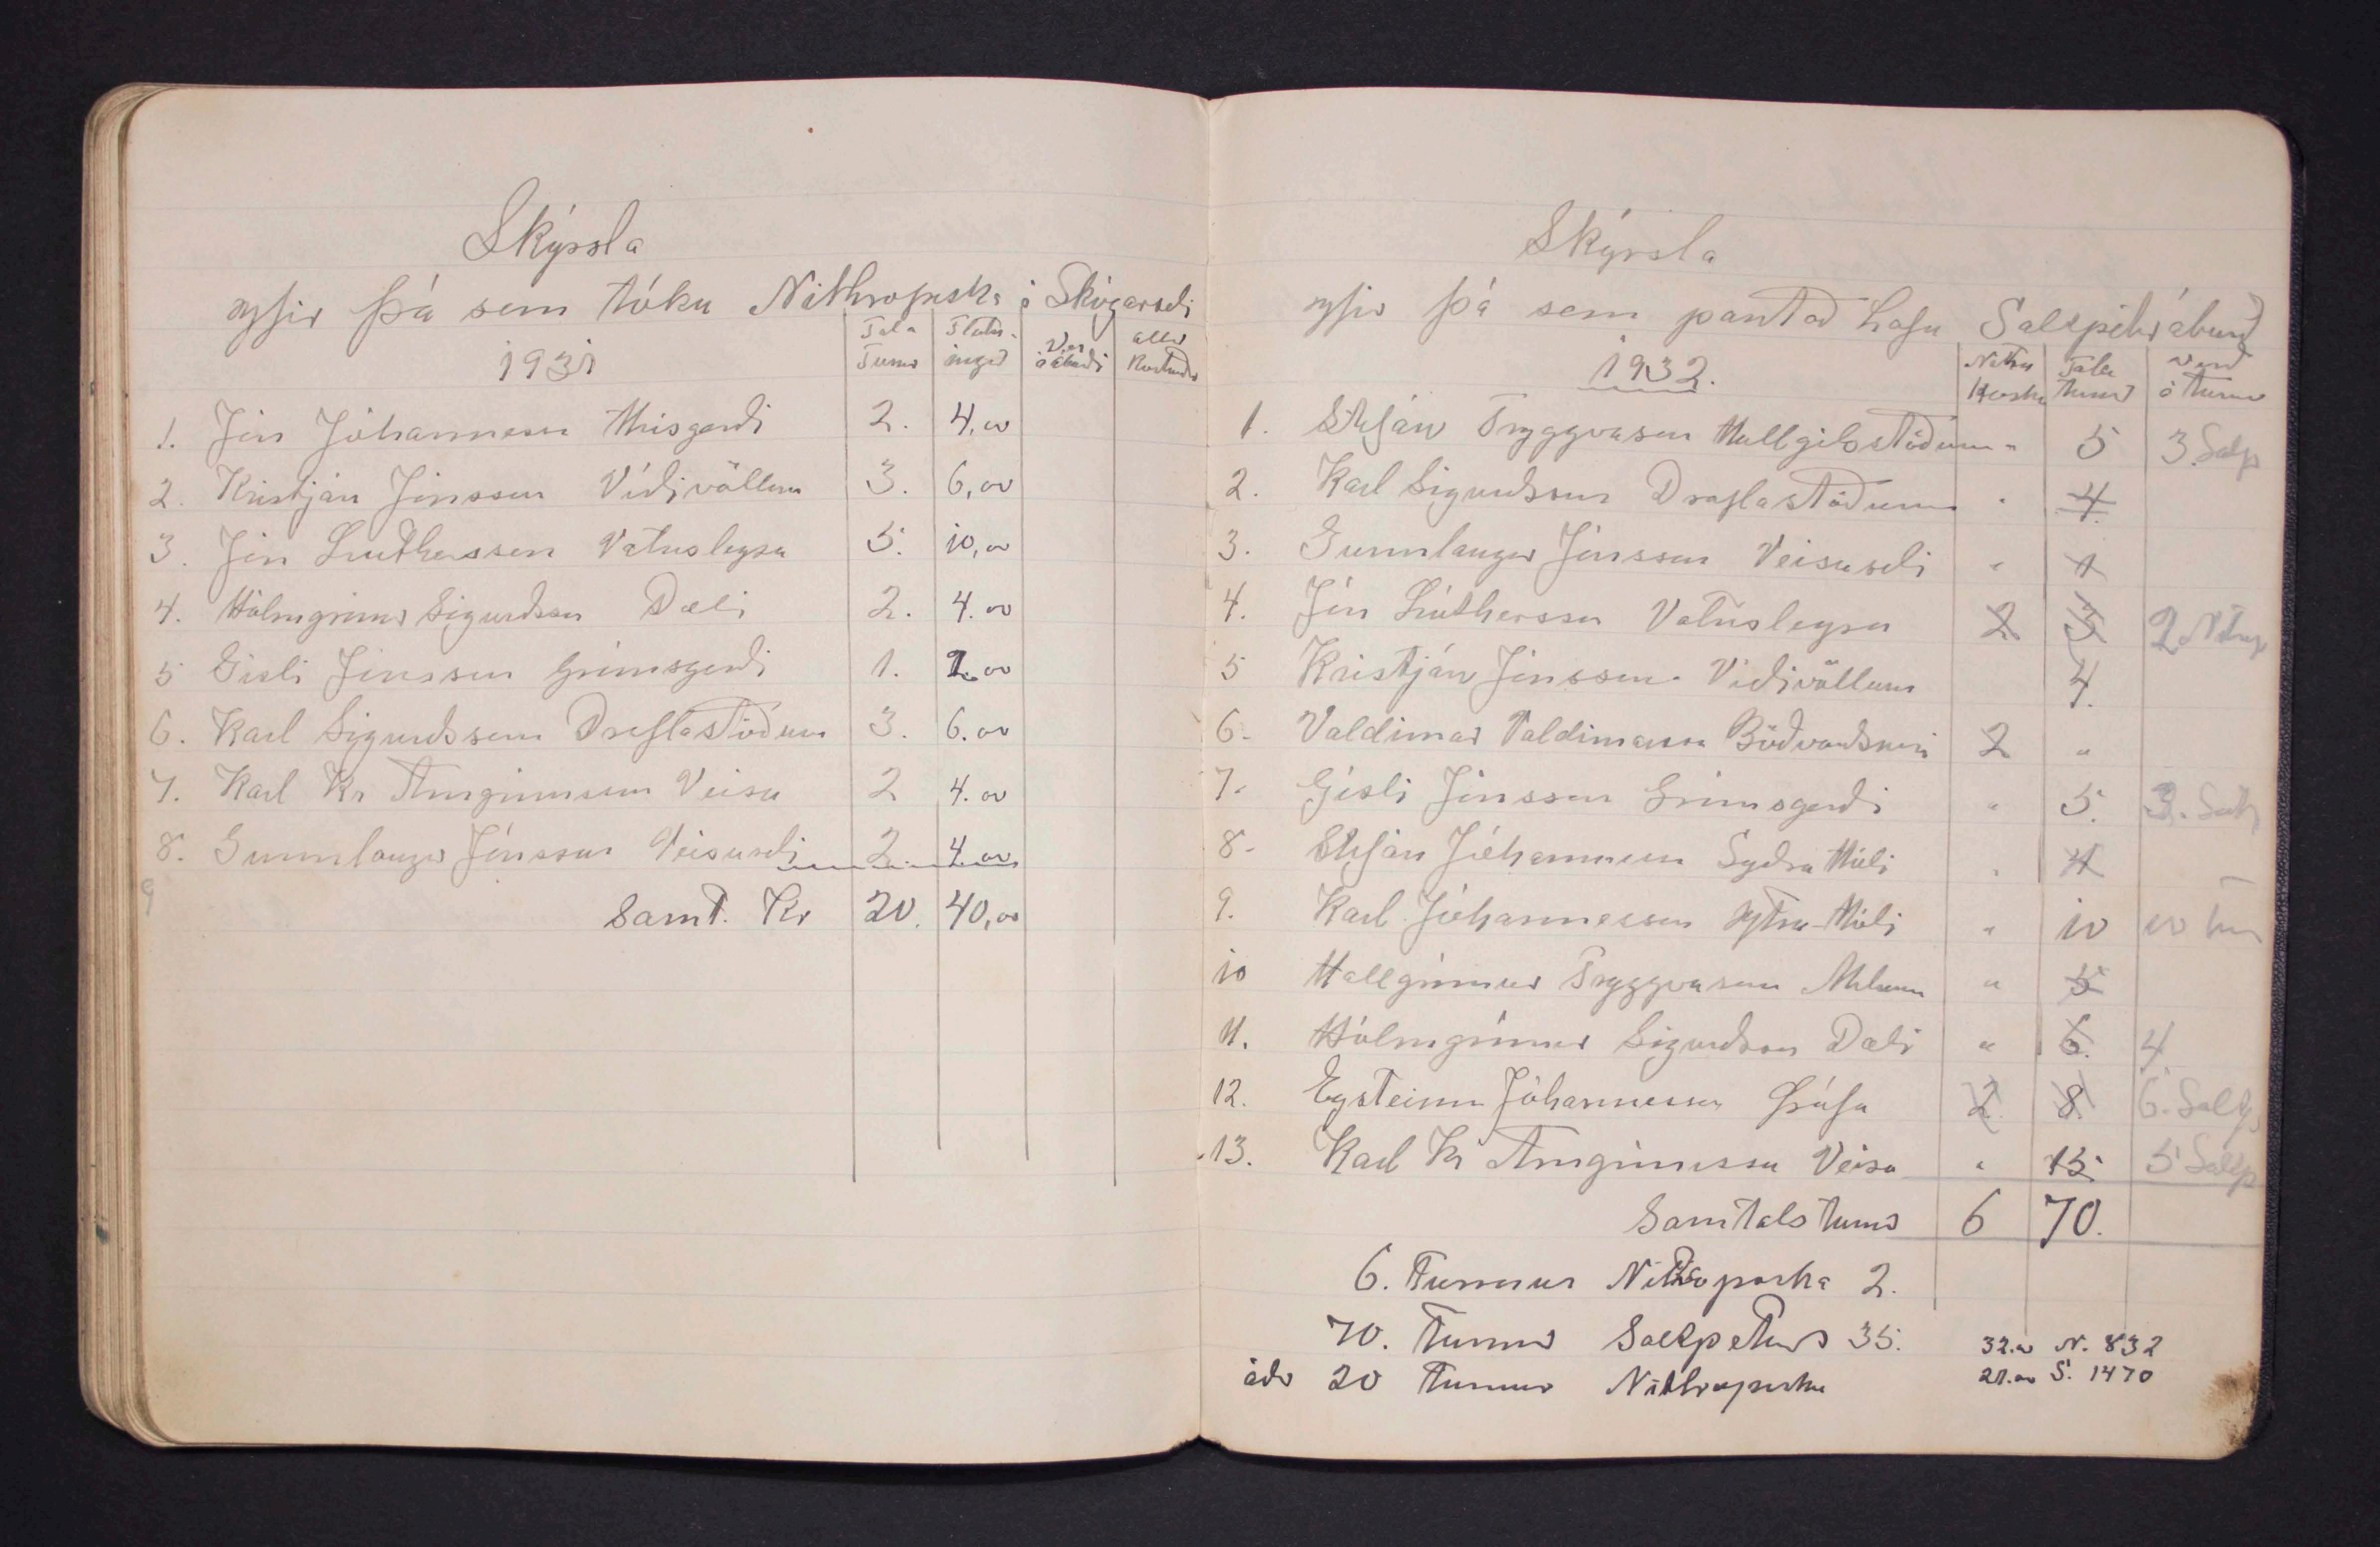 Skýrsla
yfir þá sem tóku Nithrophska í Skógarseli
1931
Tala Tunnr
Flutningur
Ver á áburdi
allur Kostnadr
1. Jón Jóhannesson Hrísgerdi 2. 4,00
2. Kristján Jónsson Vídivöllum 3. 6,00
3. Jón Lúthersson Vatnsleysu 5. 10,00
4. Hólmgrímr Sigurdsson Dæli 2. 4.00
5 Gísli Jónsson Grímsgerdi 1. 2.00
6. Karl Sigurdsson Draflastödum 3. 6.00
7. Karl Kr Arngrímsson Veisu 2 4.00
8. Gunnlaugur Jónsson Veisuseli 2. 4.00
9
Samt. Kr 20. 40,00
Skýrsla
yfir þá sem pantad hafa Saltpétrsáburd
1932.
Nitro
Tala tunnr
verd á tunnu
1. Stefán Tryggvason Hallgilsstödum " 5 3. Salp
2. Karl Sigurdsson Draflastödum " 4.
3. Gunnlaugur Jónsson Veisuseli " 1
4. Jón Lúthersson Vatnsleysu 2 3
5 Kristján Jónsson Vidivöllum 4.
6. Valdimar Valdimarsson Bödvarsnesi 2 "
7. Gísli Jónsson Grímsgerdi " 5. 3.
8. Stefán Jóhannesson Sydra Hóli " 4
9. Karl Jóhannesson Ytra-Hóli " 10 10 tun
10 Hallgrímur Tryggvason " 5
11. Hólmgrímur Sigurdsson Dæli " 6. 4
12. Eysteinn Jóhannesson Gráfu 2. 8. 6. Saltp
13. Karl Kr Arngrímsson Veisu " 15 5 Saltp
Samtals tunnr 6 70.
6. Tunnur Nitroposka 2.
70. Tunnr Saltpeturs 35. 32.00 N. 832
ádr 20 Tunnur Nithroposka 21.00 S. 1470